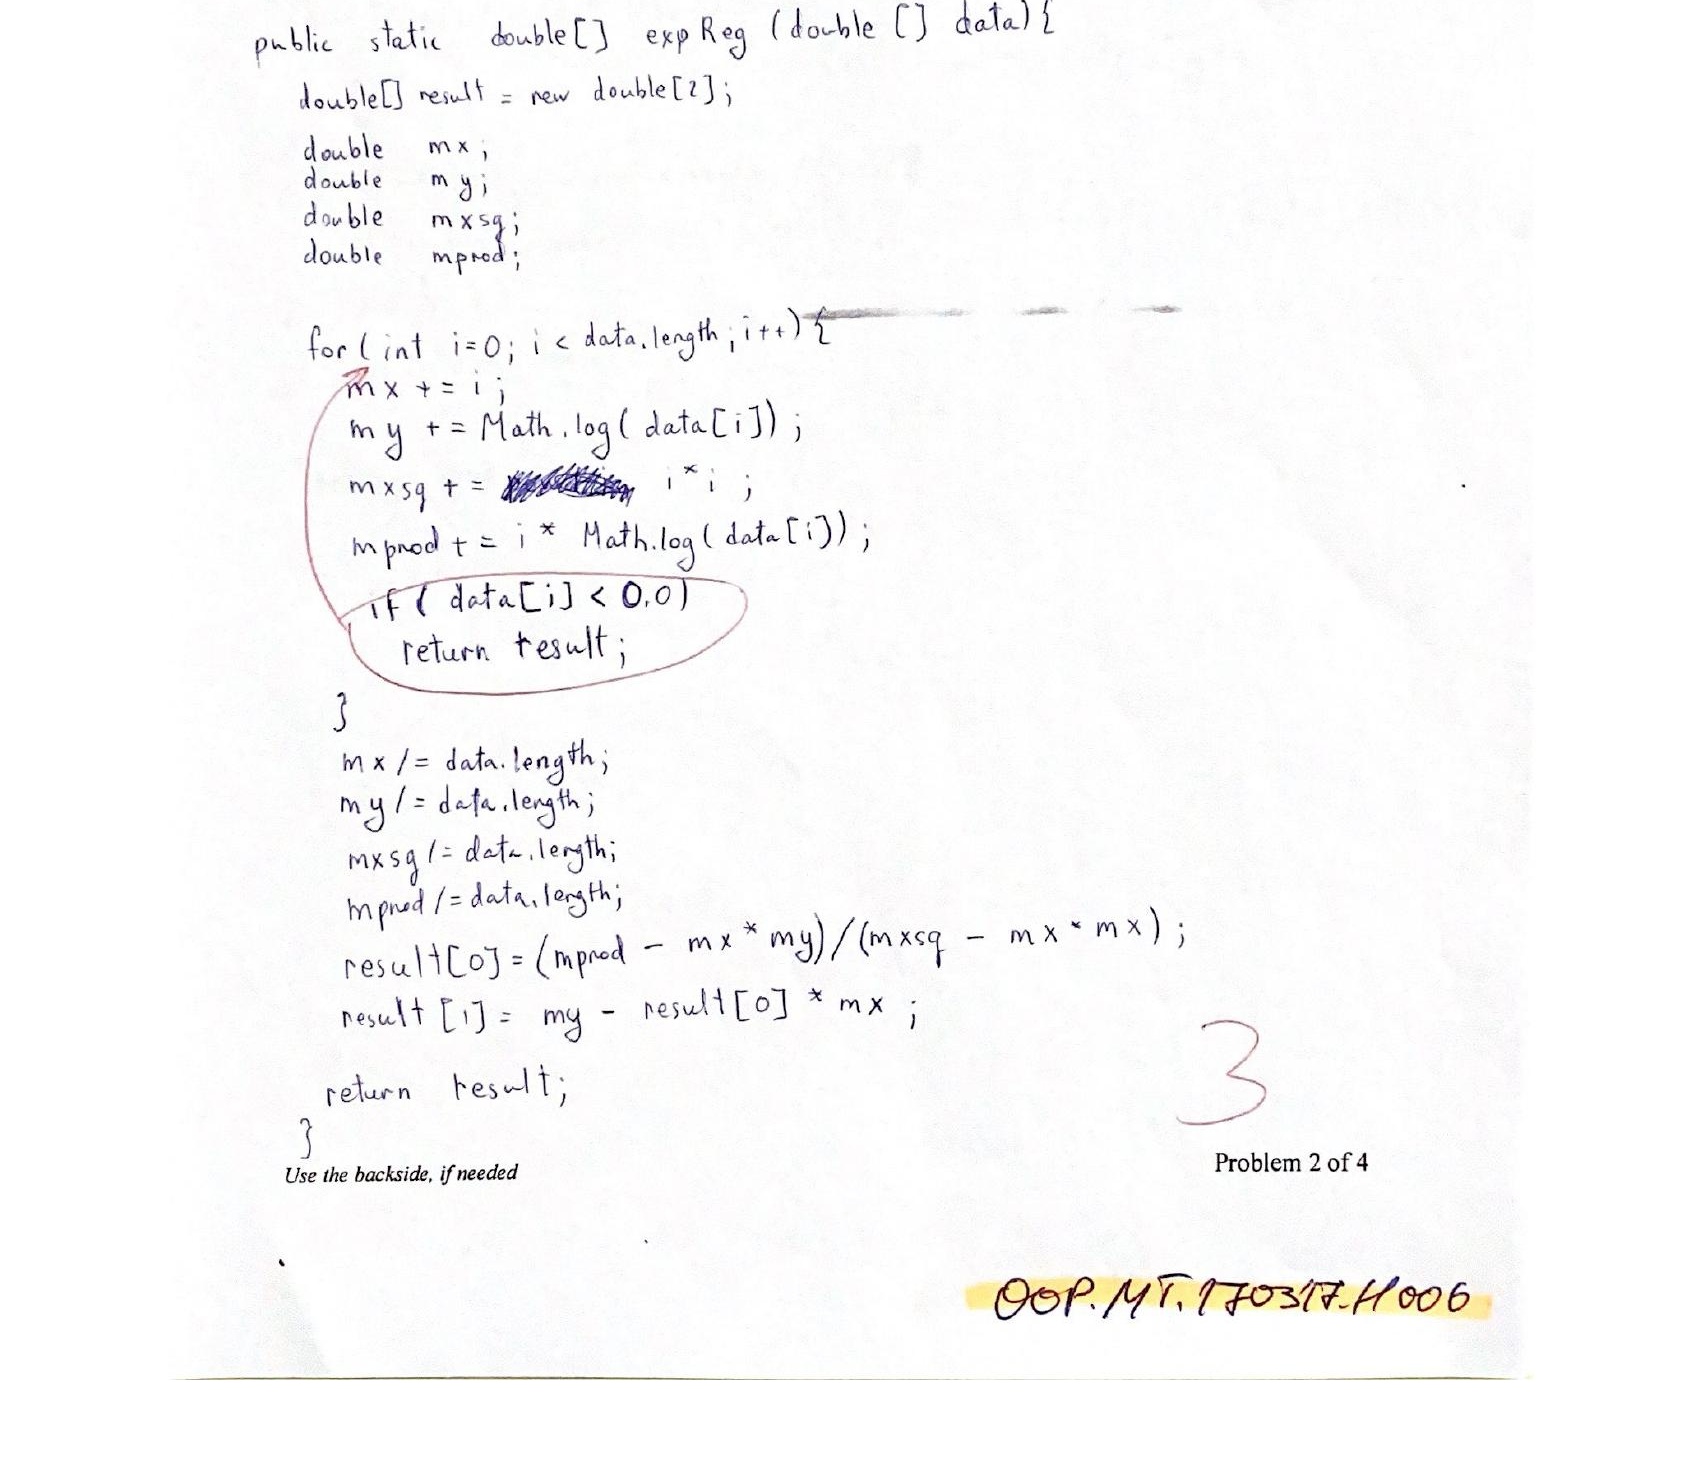 public static double[] expReg (double [] data) {
double[] result = new double[2];
double mx;
double my;
double mxsq;
double mprod;
for ( int i=0; i < data.length; i++) {
mx += i;
my += Math.log( data[i]);
mxsq += i*i ;
mprod += i * Math.log( data[i]);
if ( data[i] < 0.0)
return result;
}
mx /= data.length;
my /= data.length;
mxsq /= data.length;
mprod /= data.length;
result[0] = (mprod - mx * my)/(mxsq - mx * mx) ;
result [1] = my - result[0] * mx ;
return result;
3
}
Problem 2 of 4
Use the backside, if needed
OOP.MT.170317.H006